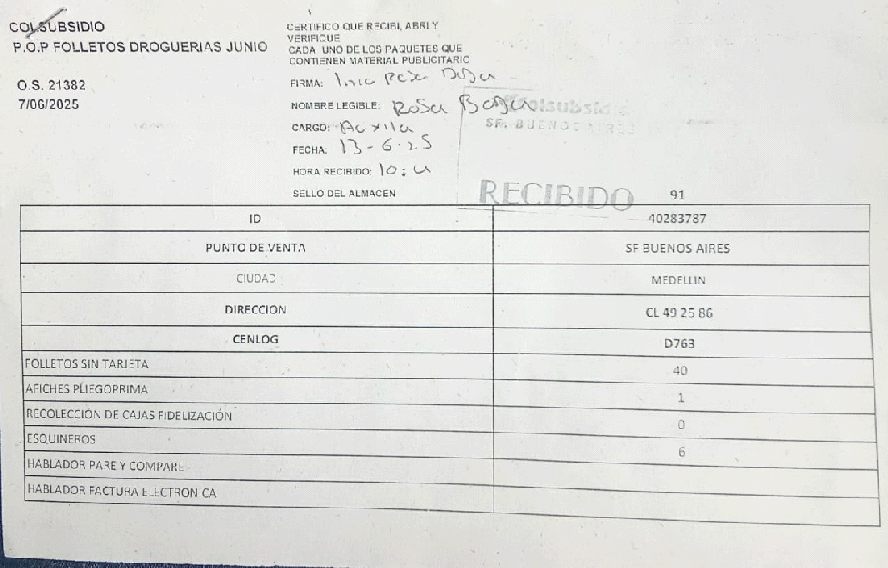 COLSUBSIDIO
P.O.P FOLLETOS DROGUERIAS JUNIO
O.S. 21382
7/06/2025
CERTIFICO QUE RECIBI, ABRI Y
VERIFIQUE
CADA UNO DE LOS PAQUETES QUE
CONTIENEN MATERIAL PUBLICITARIO
FIRMA:
NOMBRE LEGIBLE: Rosa
CARGO:
FECHA: 13-6-25
HORA RECIBIDO:
SELLO DEL ALMACEN
Colsubsidio
SF. BUENOS AIRES
RECIBIDO
91
ID 40283787
PUNTO DE VENTA SF BUENOS AIRES
CIUDAD MEDELLIN
DIRECCION CL 49 25 86
CENLOG D763
FOLLETOS SIN TARJETA 40
AFICHES PLIEGOPRIMA 1
RECOLECCIÓN DE CAJAS FIDELIZACIÓN 0
ESQUINEROS 6
HABLADOR PARE Y COMPARE
HABLADOR FACTURA ELECTRONICA